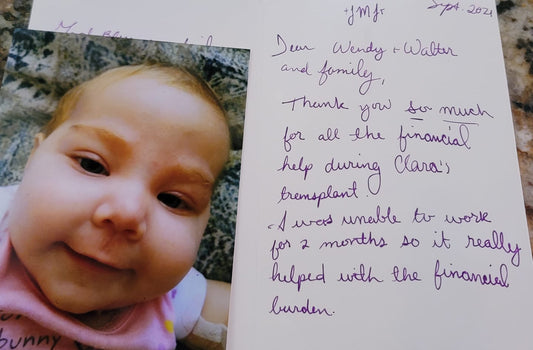 +JMJ+
Sept. 2021
Dear Wendy + Walter
and family,
Thank you so much
for all the financial
help during Clara's
transplant.
I was unable to work
for 2 months so it really
helped with the financial
burden.
bunny